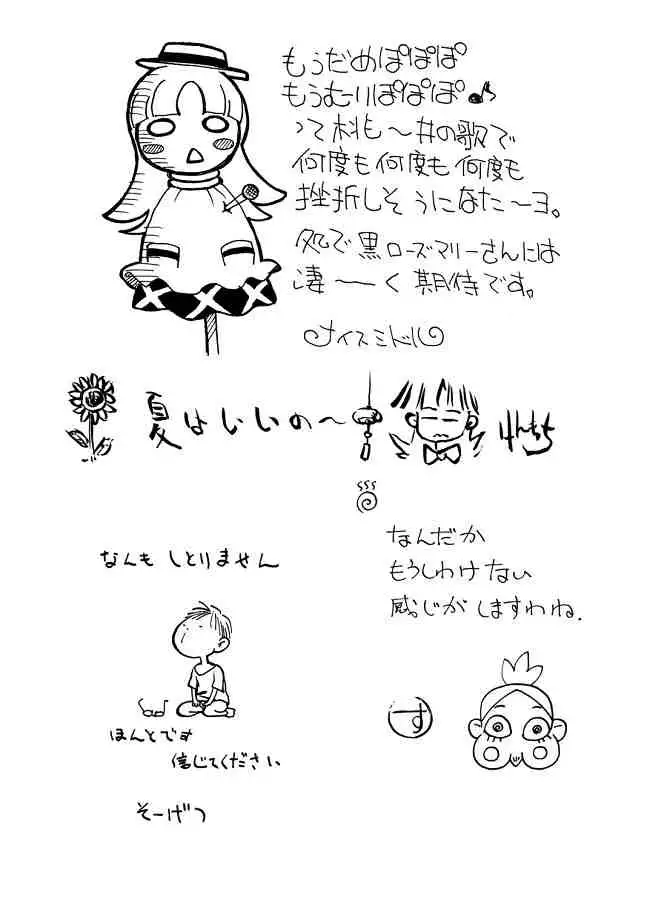 もうだめぽぽぽ
もうむりぽぽぽ♪
って桃〜井の歌で
何度も何度も何度も
挫折しそうになた〜ヨ。
処で黒ローズマリーさんには
凄ーく期待です。
ナイスミドル
夏はいいの〜
けんちち
なんもしとりません
なんだか
もうしわけない
感じがしますわね.
ほんとです
信じてください
そーげつ
す